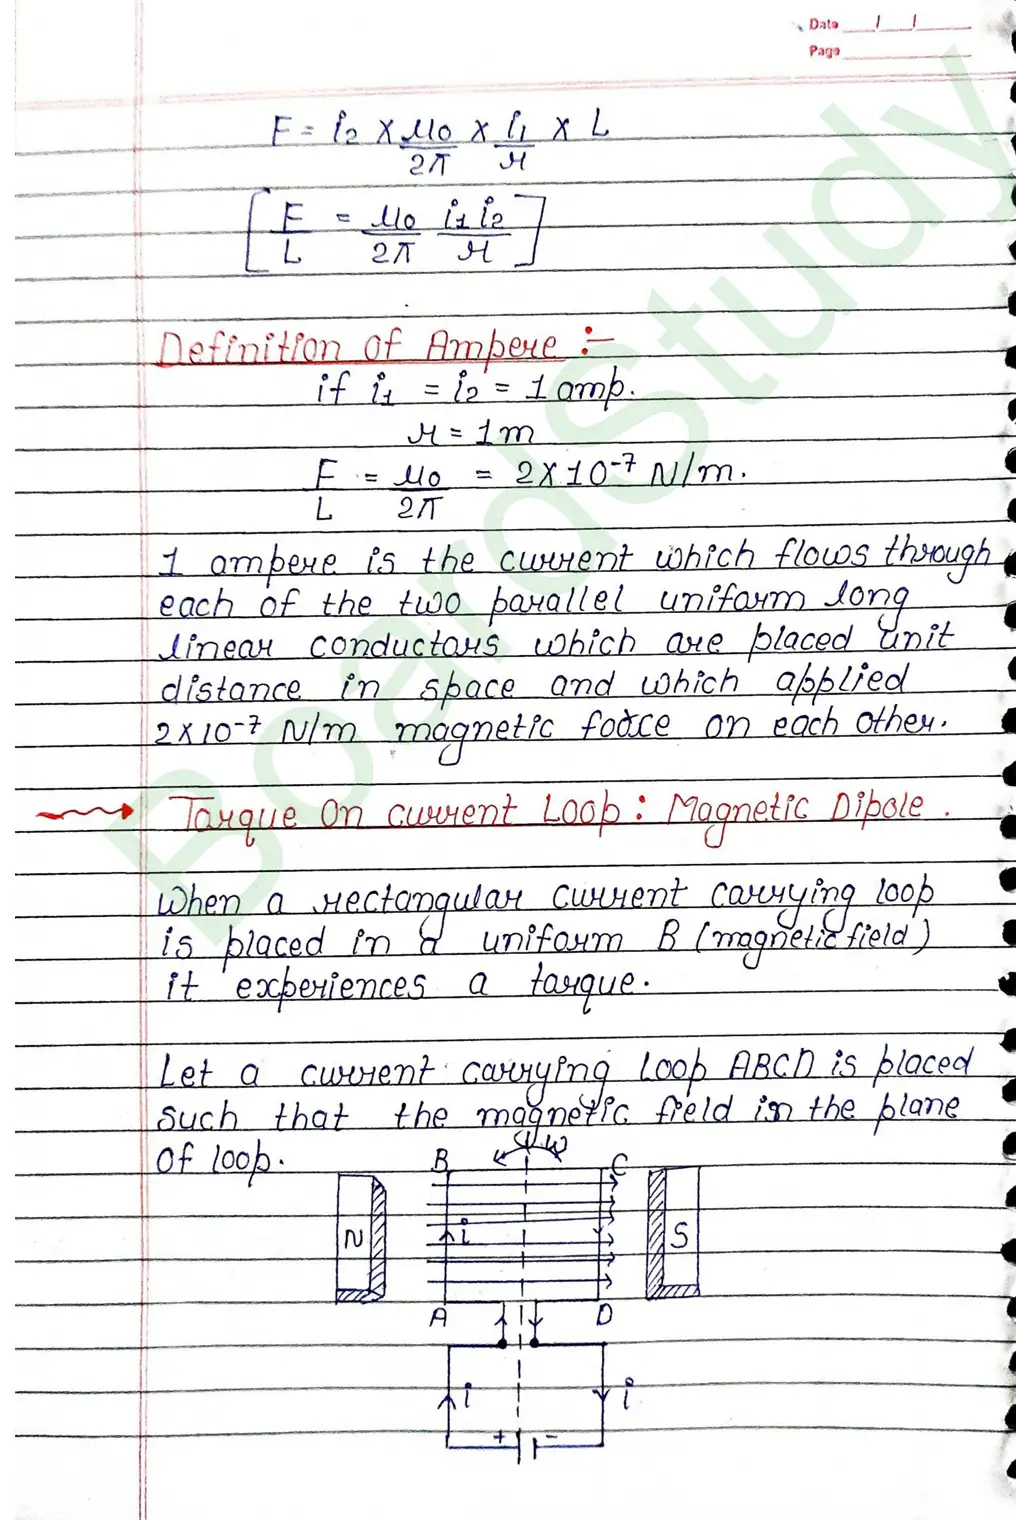 Date / /
Page
F = i2 × μ0/2π × i1/r × L
[F/L = μ0/2π i1 i2/r]
Definition of Ampere :-
if i1 = i2 = 1 amp.
r = 1m
F/L = μ0/2π = 2×10⁻⁷ N/m.
1 ampere is the current which flows through
each of the two parallel uniform long
linear conductors which are placed unit
distance in space and which applied
2×10⁻⁷ N/m magnetic force on each other.
Torque On current Loop : Magnetic Dipole .
When a rectangular current carrying loop
is placed in a uniform B (magnetic field)
it experiences a torque.
Let a current carrying Loop ABCD is placed
such that the magnetic field in the plane
of loop.
ω
B C
N i S
A D
i i
+ -
BoardStudy